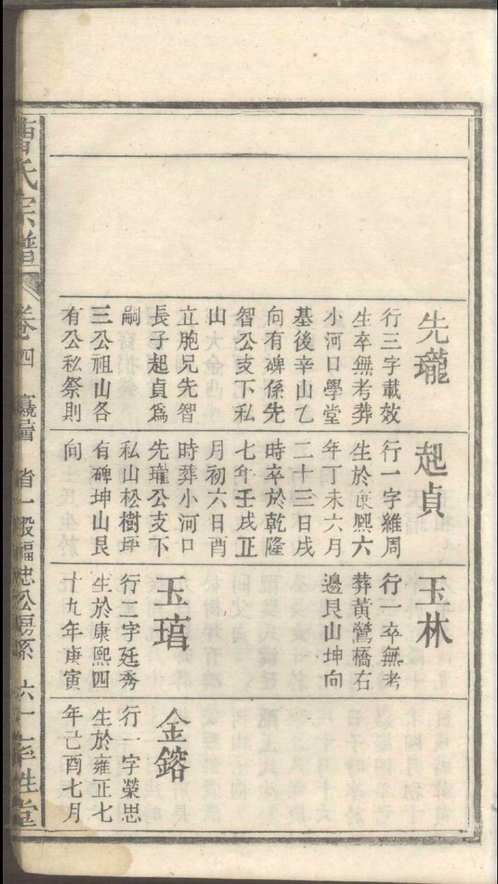 先瓏
行三字載效
生卒無考葬
小河口學堂
基後辛山乙
向有碑係先
智公支下私
山
立胞兄先智
長子起貞爲
嗣
三公祖山各
有公私祭則
起貞
行一字維周
生於康熙六
年丁未六月
二十三日戌
時卒於乾隆
七年壬戌正
月初六日酉
時葬小河口
先瓏公支下
私山松樹坪
有碑坤山艮
向
玉林
行一卒無考
葬黃鶯橋右
邊艮山坤向
玉瑃
行二字廷秀
生於康熙四
十九年庚寅
金鎔
行一字榮思
生於雍正七
年己酉七月
曹氏宗譜
卷四